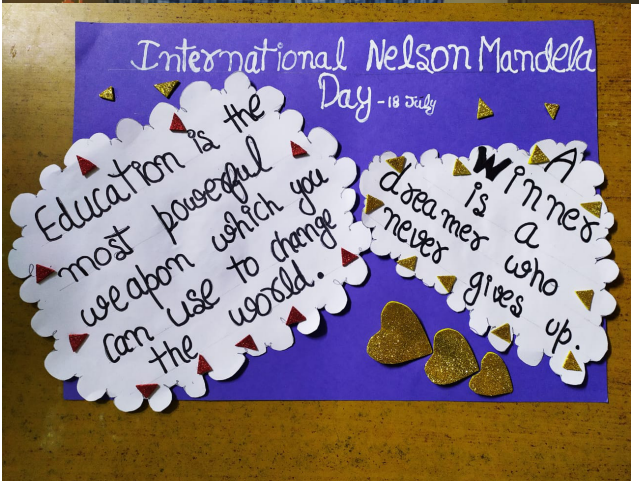 International Nelson Mandela
Day - 18 July
Education is the
most powerful
weapon which you
can use to change
the world.
A
Winner
is a
dreamer who
never gives up.